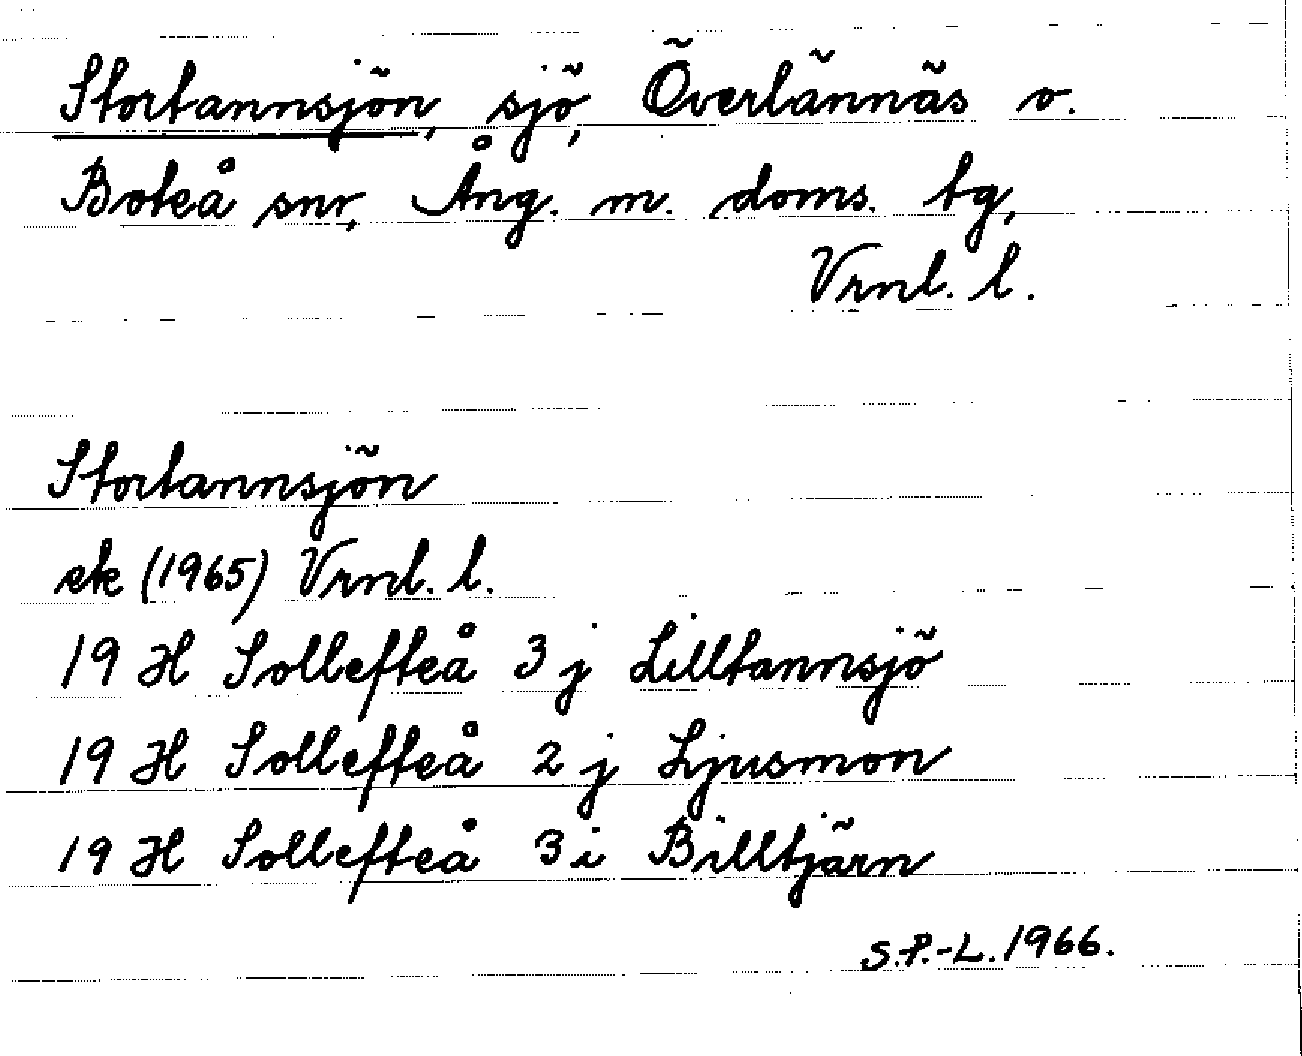 Stortannsjön, sjö, Överlännäs o.
Boteå snr, Ång. m. doms. tg,
Vrnl. l.
Stortannsjön
ek (1965) Vrnl. l.
19 H Sollefteå 3 j Lilltannsjö
19 H Sollefteå 2 j Ljusmon
19 H Sollefteå 3 i Billtjärn
S.P.-L. 1966.